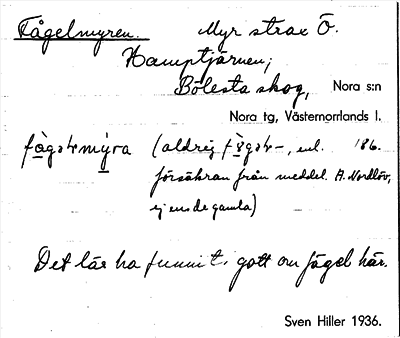 Fågelmyren. Myr strax Ö.
Hamptjärnen;
Bölesta skog, Nora s:n
Nora tg, Västernorrlands l.
(aldrig enl. 186.
försäkran från meddel. A. Nordlöv,
ej ens de gamla)
Det lär ha funnit. gott om fågel här.
Sven Hiller 1936.